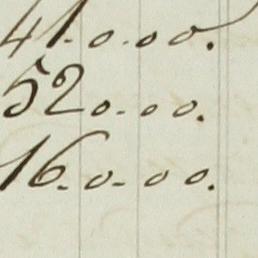 41.0.00.
520.00.
16.0.00.